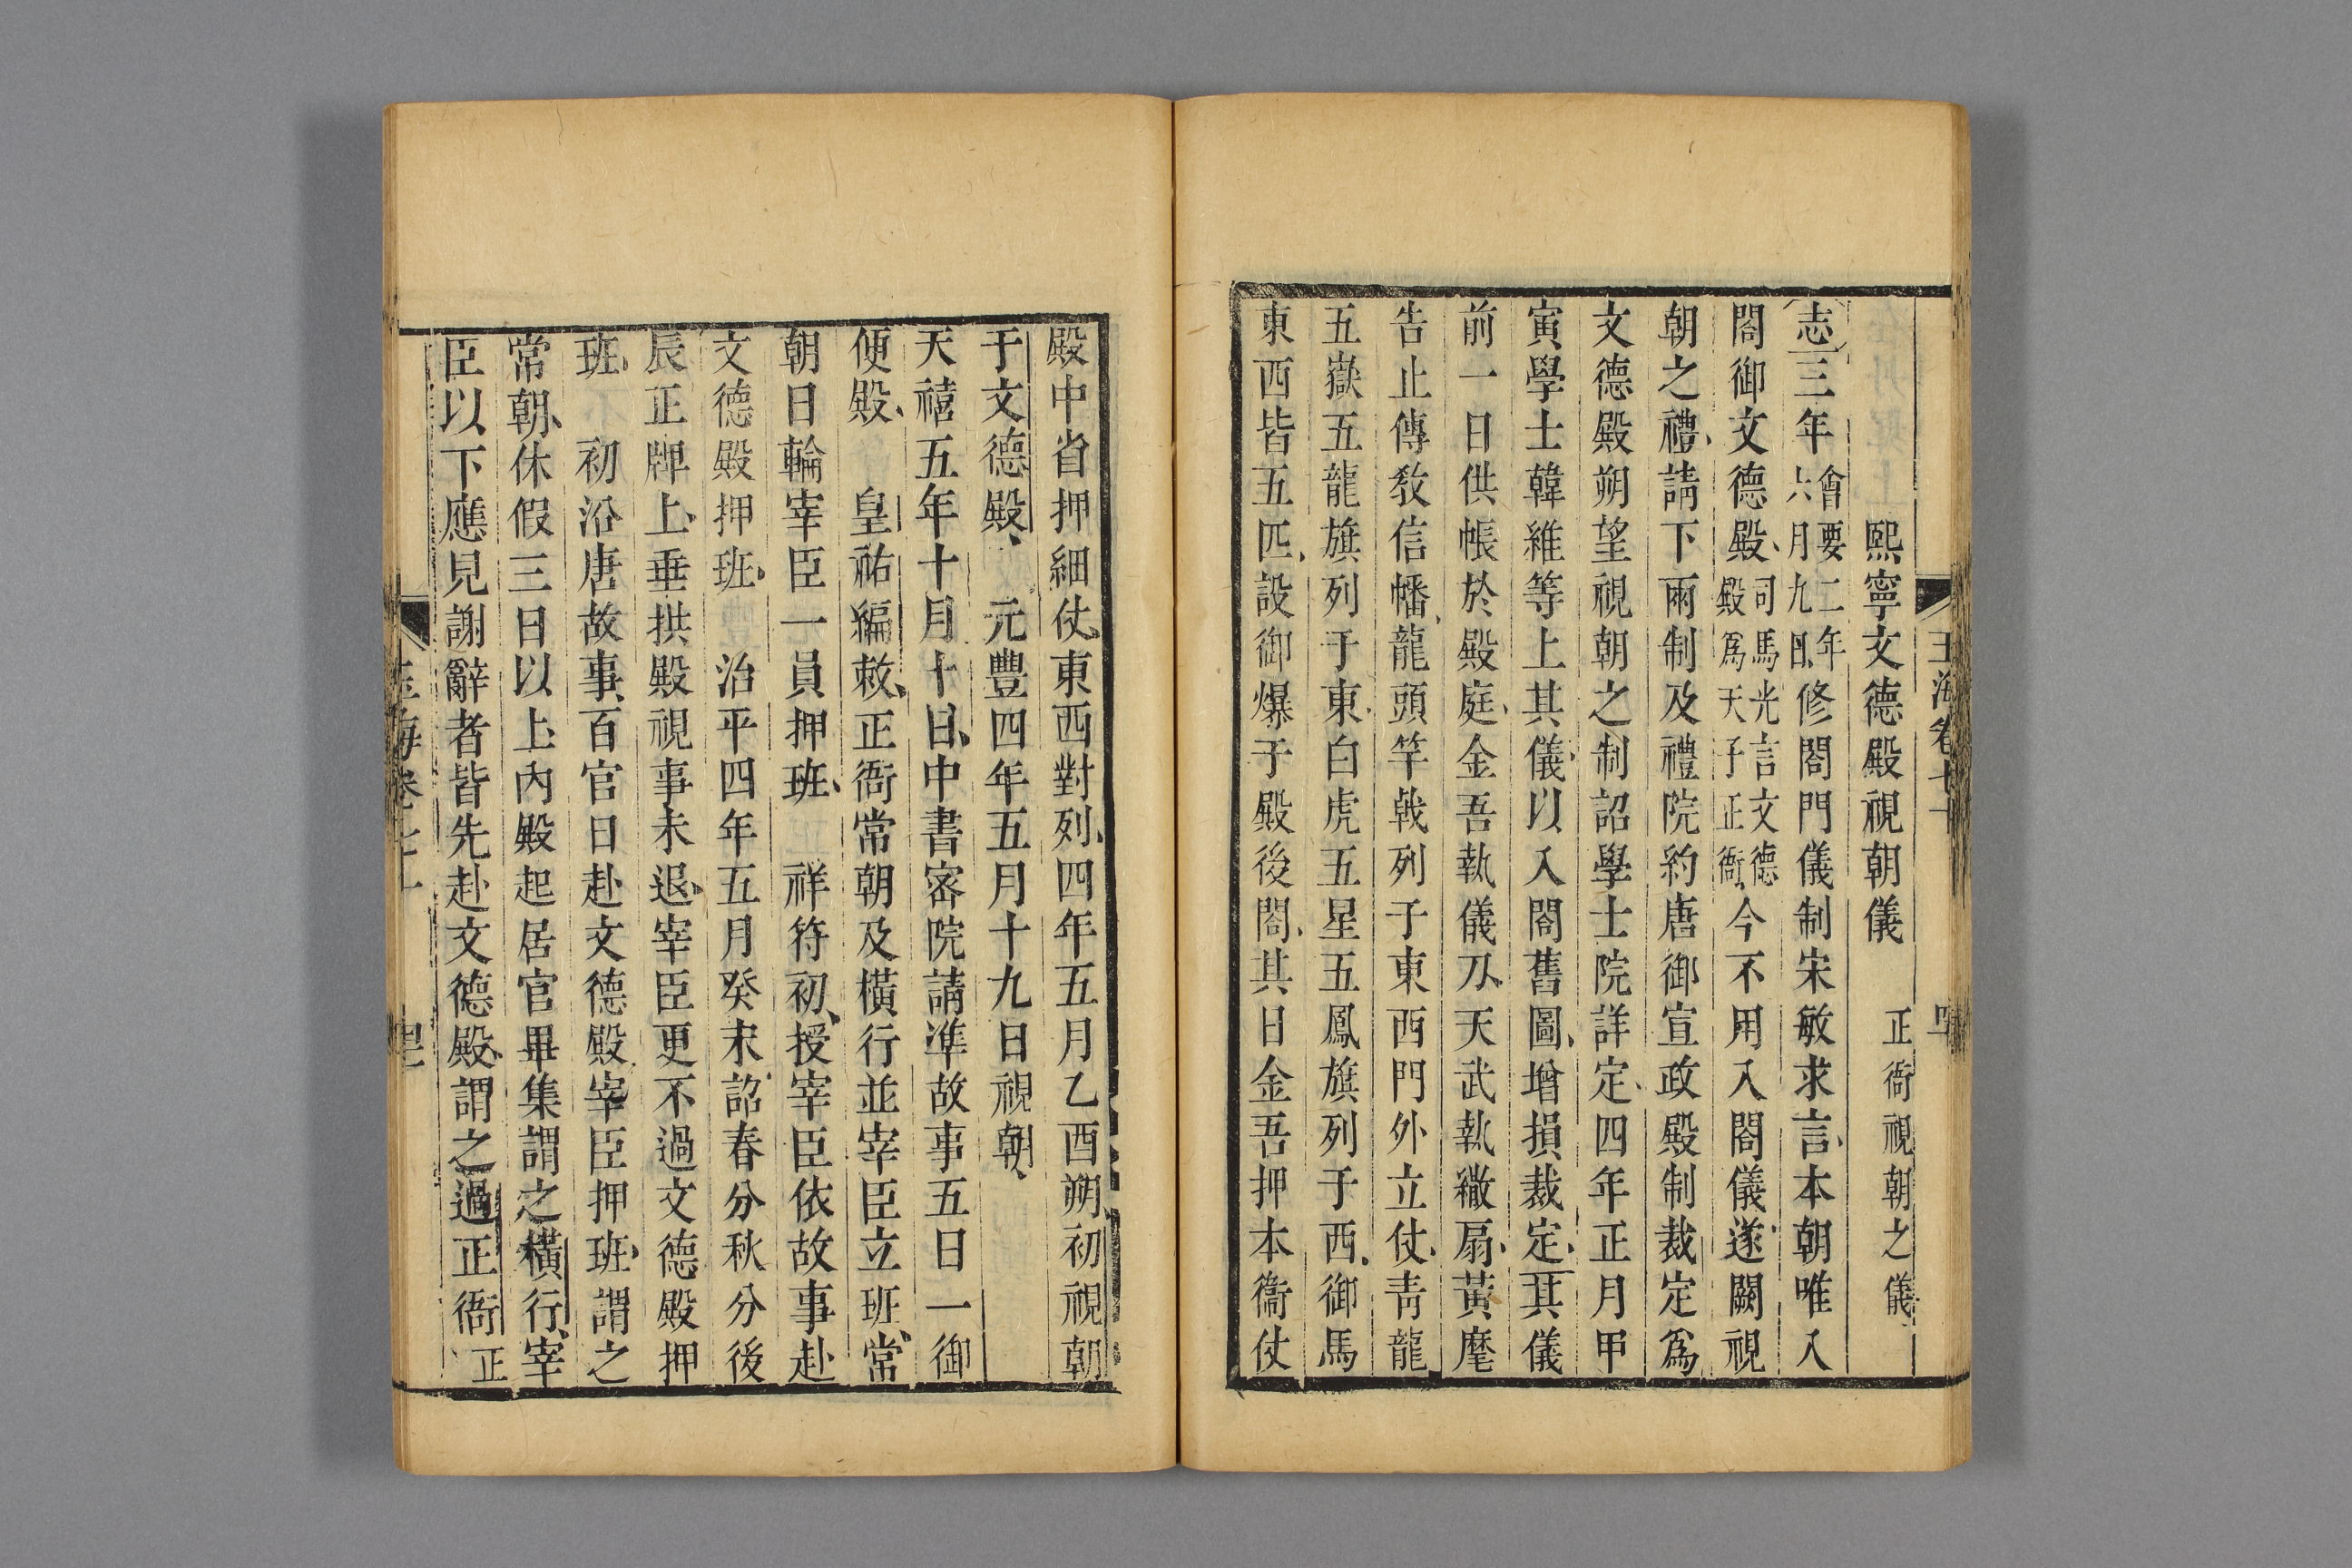 熙寧文德殿視朝儀 正衙視朝之儀
志三年會要二年六月九日修閤門儀制宋敏求言本朝唯入
閤御文德殿司馬光言文德殿爲天子正衙今不用入閤儀遂闕視
朝之禮請下兩制及禮院約唐御宣政殿制裁定爲
文德殿朔望視朝之制詔學士院詳定四年正月甲
寅學士韓維等上其儀以入閤舊圖增損裁定其儀
前一日供帳於殿庭金吾執儀刀天武執繖扇黃麾
告止傳敎信幡龍頭竿戟列于東西門外立仗靑龍
五嶽五龍旗列于東白虎五星五鳳旗列于西御馬
東西皆五匹設御爆于殿後閤其日金吾押本衞仗
殿中省押細仗東西對列四年五月乙酉朔初視朝
于文德殿 元豐四年五月十九日視朝
天禧五年十月十日中書密院請準故事五日一御
便殿 皇祐編敕正衙常朝及橫行並宰臣立班常
朝日輪宰臣一員押班 祥符初授宰臣依故事赴
文德殿押班 治平四年五月癸未詔春分秋分後
辰正牌上垂拱殿視事未退宰臣更不過文德殿押
班 初沿唐故事百官日赴文德殿宰臣押班謂之
常朝休假三日以上內殿起居官畢集謂之橫行宰
臣以下應見謝辭者皆先赴文德殿謂之過正衙正